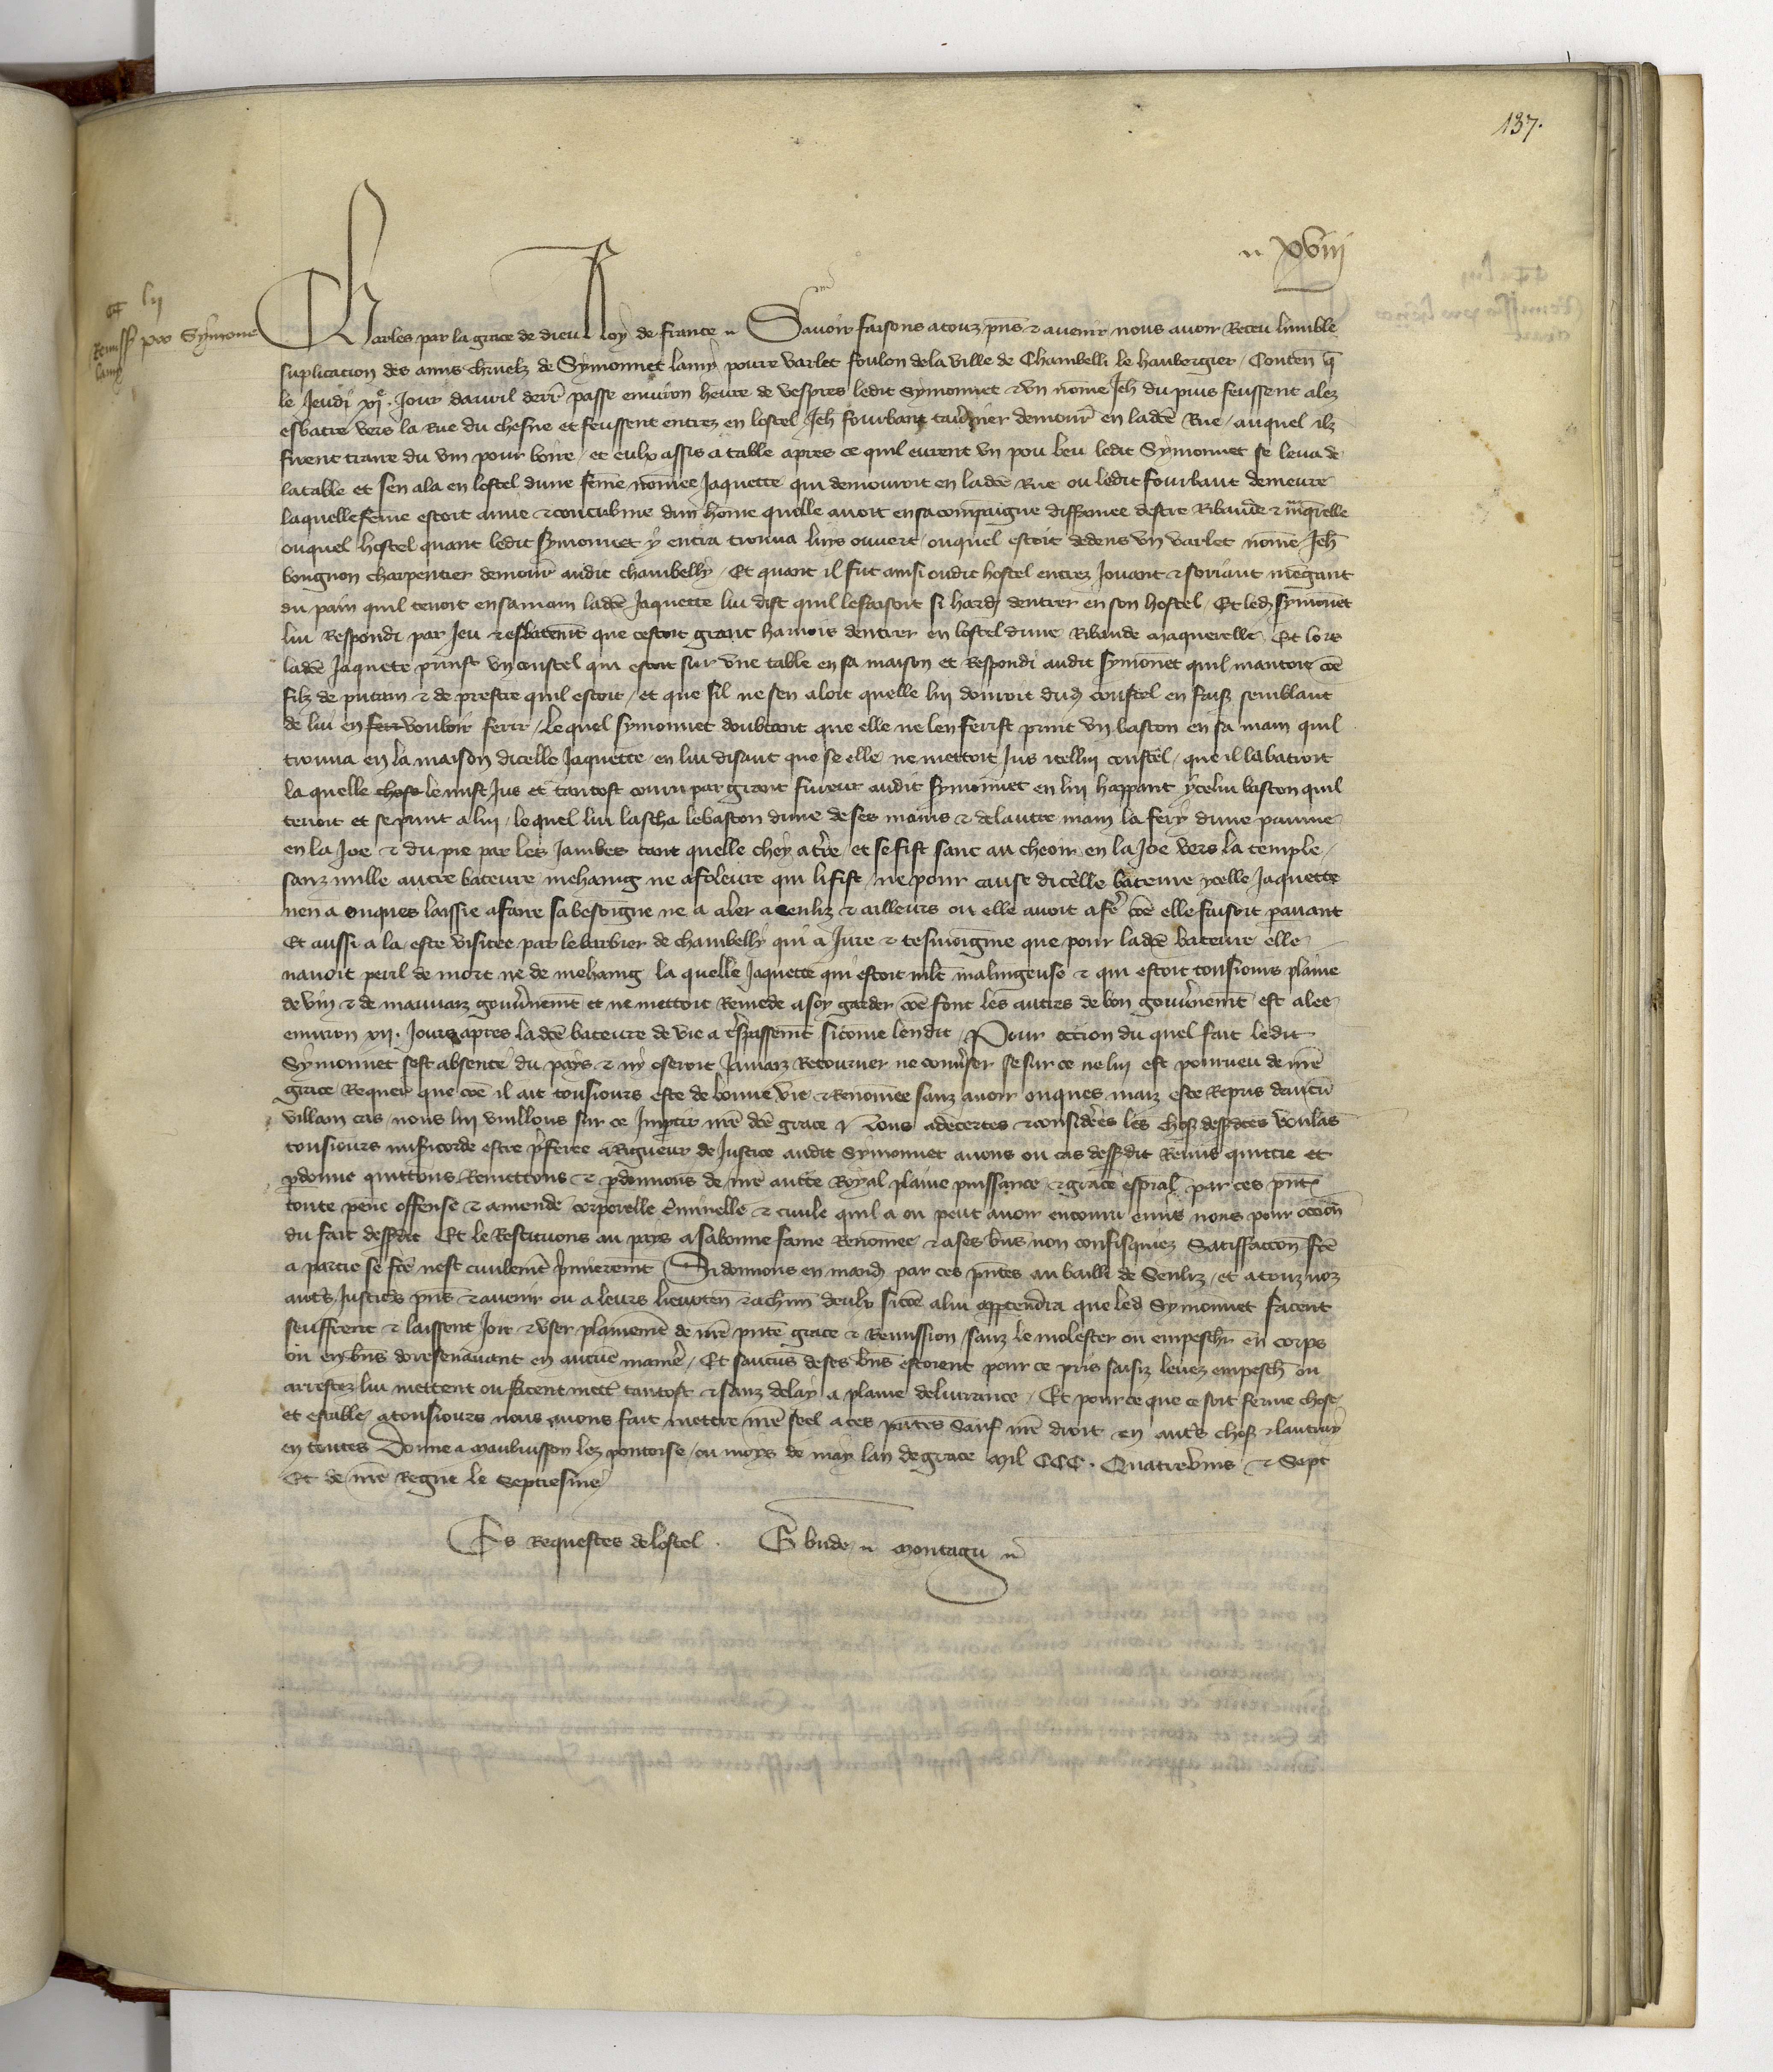 137.
xviii
lii
Remissio pro Symone
lamy
Charles par la grace de dieu Roy de france Savoir faisons a touz pns̄ & avenir nous avoir Receu lumble
suplication des amis charnelz de Symonnet lamy povre varlet foulon de la ville de Chambelli le haubergier / Conten̄ q̄
le Jeudi xie. Jour davril derr̄ passe environ heure de vespres ledit Symonnet & un nom̄e Jeh̄ du puis feussent alez
esbatre vers la Rue du chesne et feussent entrez en lostel Jeh̄ fourbaut tav̄nier demour̄ en ladc̄e Rue / auquel ilz
firent traire du vin pour boire / et eulx assis a table apres ce quil eurent un pou beu ledit Symonnet se leva de
la table et sen ala en lostel dune fem̄e nom̄ee Jaquette qui demouroit en ladc̄e Rue ou ledit fourbaut demeure
laquelle fem̄e estoit amie & concubine dun hom̄e quelle avoit en sa compaignie diffamee destre Ribaude & maq̄relle
ouquel hostel quant ledit Symonnet y entra trouva luys ouvert / ouquel estoit dedens un varlet nom̄e Jeh̄
bougnon charpentier demour̄ audit chambelly / Et quant il fut ainsi oudit hostel entrez Jouant & soriant mēgant
du pain quil tenoit en sa main ladc̄e Jaquette lui dist quil le faisoit si hardj dentrer en son hostel / Et led̄ Symonet
lui Respondi par Jeu & esbatem̄t que cestoit grant harnois dentrer en lostel dune Ribaude maquerelle / Et lors
ladc̄e Jaquete prinst un coustel qui estoit sur une table en sa maison et Respondi audit Symonet quil mantoit cōe
filz de putain & de prestre quil estoit / et que sil ne sen aloit quelle lui donroit dud̄ coustel en fais̄ semblant
de lui en ferir vouloir ferir / Lequel Symonnet doubtant que elle ne len ferist print un baston en sa main quil
trouva en la maison dicelle Jaquette / en lui disant que se elle ne mettoit Jus icellui coustel / que il la batroit
la quelle chose le mist Jus et tantost couru par grant fureur audit Symonnet en lui happant ycelui baston quil
tenoit et se print a lui / lequel lui lascha le baston dune de ses mains & de lautre main la fery dune paume
en la Joe & du pie par les Jambes tant quelle chey a tr̄re / et se fist sanc au cheoir en la Joe vers la temple /
sanz nulle autre bateure mehaing ne afoleure qui li fist / ne pour cause dicelle bateure ycelle Jaquette
nen a onques laissie a faire sa besoigne ne a aler a Senliz & ailleurs ou elle avoit a fē cōe elle faisoit p̄avant
Et aussi a la este visitee par le barbier de chambelly qui a Jure & tesmoigne que pour ladc̄e bateure elle
navoit peril de mort ne de mehaing la quelle Jaquette qui estoit mlt̄ malingeuse & qui estoit tousiours plaine
de vin & de mauvaiz gouv̄nemt̄ et ne mettoit Remede a soy garder cōe font les autres de bon gouv̄nemt̄ est alee
environ xij. Jours apres ladc̄e bateure de vie a tr̄spassemt̄ sicome len dit / Pour occion du quel fait ledit
Symonnet sest absente du pays & ny oseroit Jamaiz Retourner ne conv̄ser se sur ce ne lui est pourveu de nr̄e
grace Requer̄ que cōe il ait tousiours este de bonne vie & Renom̄ee sanz avoir onques maiz este Repris daucū
villain cas nous lui vuillons sur ce Impartir nr̄e dc̄e grace Nous adecertes & considērs les chos̄ dessdc̄es voulās
tousiours mis̄icorde estre p̄feree a Rigueur de Justice audit Symonnet avons ou cas dessdit Remis quittie et
p̄donne quittons Remettons & p̄donnons de nr̄e auctē Royal plaine puissance & grace esp̄ial par ces pnt̄es
toute peine offense & amende corporelle c̄minelle & civile quil a ou peut avoir encouru env̄s nous pour occion̄
du fait dessdit Et le Restituons au pays a sa bonne fame Renomee & a ses bn̄s non confisquiez Satisfaccōn fc̄e
a partie se fc̄e nest civilemt̄ p̄mieremt̄ Si donnons en mand̄ par ces pnt̄es au bailli de Senliz / et a touz noz
autr̄s Justic̄s pns̄ & avenir ou a leurs lieuxten̄ & a chm̄ deulx sicōe a lui appartendra que led̄ Symonnet facent
seuffrent & laissent Joir & user plainemt̄ de nr̄e pnt̄e grace & Remission / sanz le molester ou empesch̄r en corps
ou en bn̄s doresenavant en aucūe manie᷑ / Et saucuns de ses bn̄s estoient pour ce pris saisiz levez empesch̄ ou
arrestez lui mettent ou facent mett̄ tantost & sanz delay a plaine delivrance / Et pour ce que ce soit ferme chose
et estable a tousiours nous avons fait mettre nr̄e seel a ces pnt̄es Sauf nr̄e droit en autr̄s chos̄ & lautruy
en toutes Donne a maubuisson lez pontoise / ou moys de may lan de grace mil CCC. Quatrevins & Sept
Et de nr̄e Regne le Septiesme
Es Requestes de lostel . G bude montagu